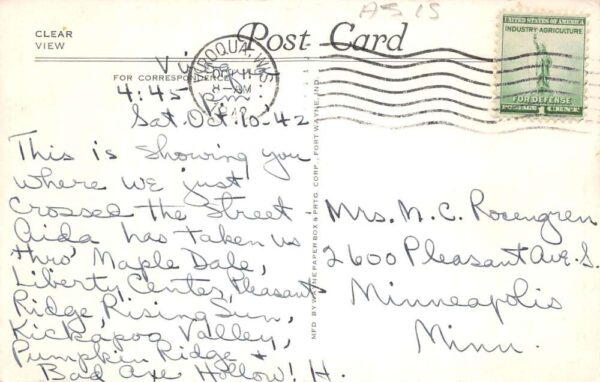 AS IS
CLEAR
VIEW
Post Card
FOR CORRESPONDENCE
UNITED STATES OF AMERICA
INDUSTRY AGRICULTURE
FOR DEFENSE
POSTAGE 1 CENTS
VIROQUA, WIS.
OCT 11
8-AM
4:45 P.m.
Sat. Oct. 10-42
This is showing you
where we just
crossed the street
Aida has taken us
thro' Maple Dale,
Liberty Center, Pleasant
Ridge, Rising Sun,
Kickapoo Valley,
Pumpkin Ridge +
Bad Axe Hollow! H.
MFD BY WAYNE PAPER BOX & PRTG. CORP., FORT WAYNE, IND.
Mrs. N. C. Rosengren
2600 Pleasant Ave. S.
Minneapolis
Minn.